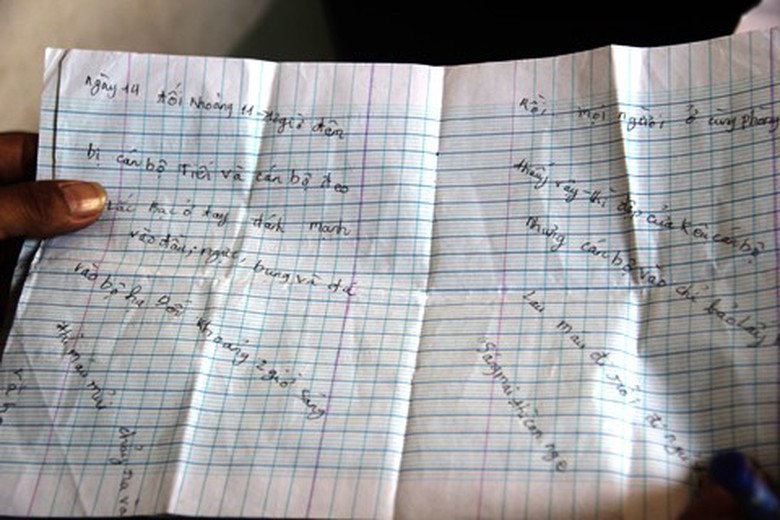 ngày 14 tối khoảng 11-12 giờ đêm
bị cán bộ Tiết và cán bộ đeo
vác hai ở tay đánh mạnh
vào đầu, ngực, bụng và đá
vào bộ hạ Đến khoảng 2 giờ sáng
thì máu mũi chảy ra và
Rồi mọi người ở cùng phòng
thấy vậy thì đập cửa kêu cán bộ
nhưng cán bộ vào chỉ bảo lấy
Lau máu đi rồi đi ngủ
Sáng mai thì con nge